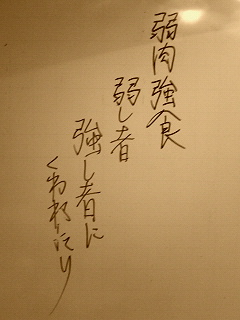 弱肉強食
弱し者
強し者に
くわれにけり